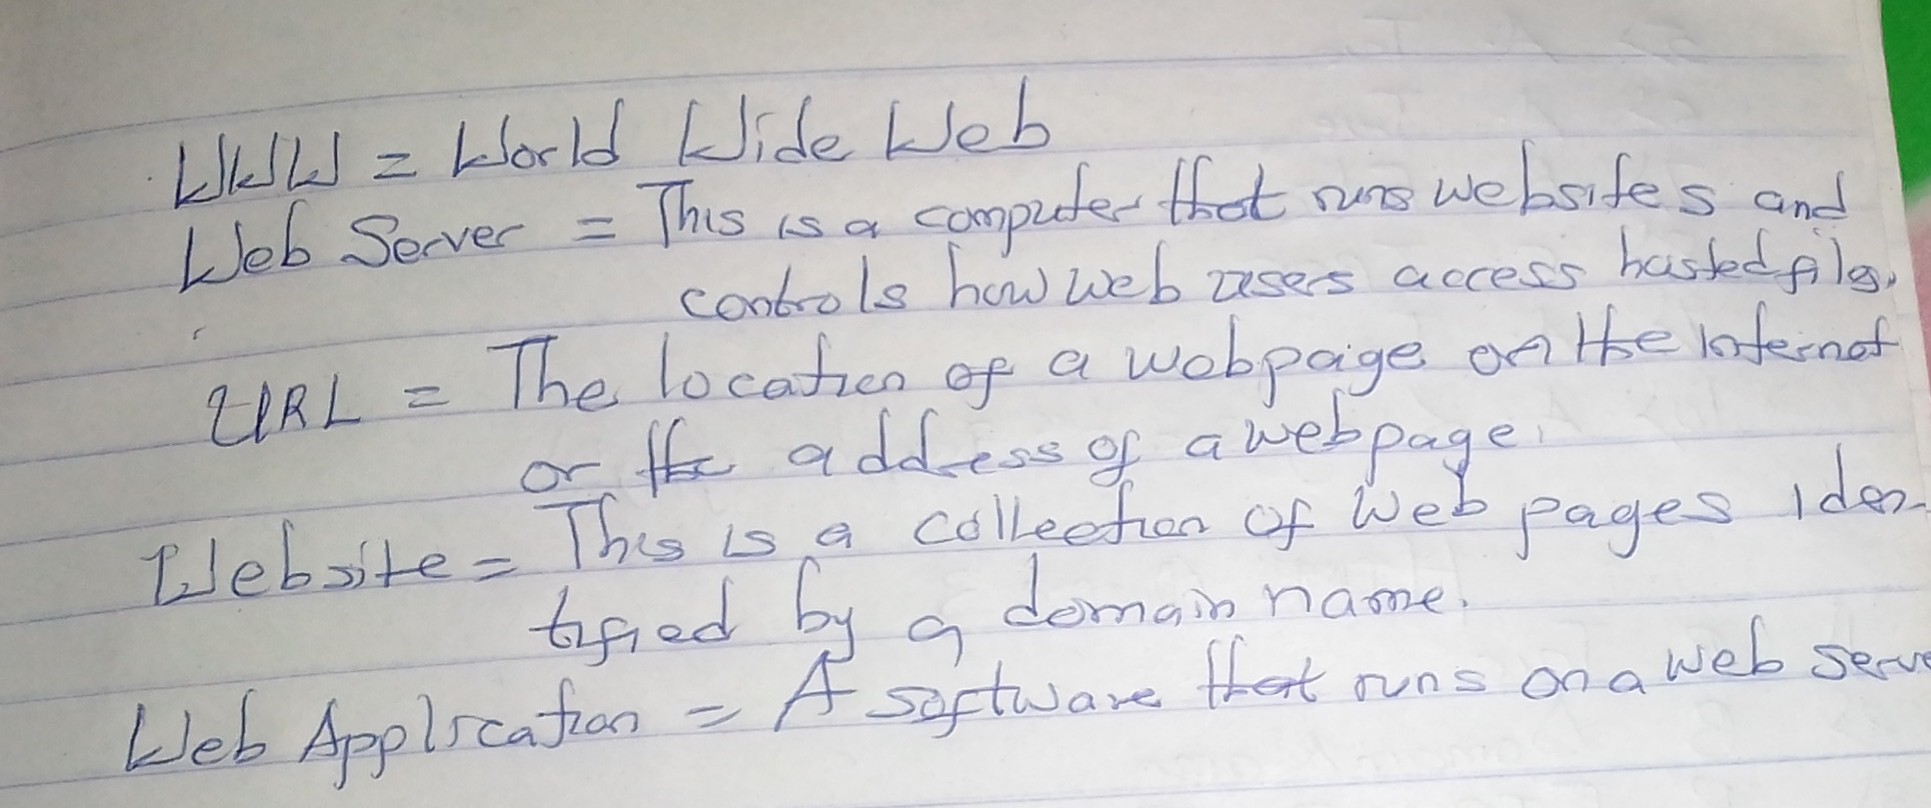 WWW = World Wide Web
Web Server = This is a computer that runs websites and
controls how web users access hosted files.
URL = The location of a webpage on the Internet
or the address of a webpage.
Website = This is a collection of web pages iden-
tified by a domain name.
Web Application = A software that runs on a web serve